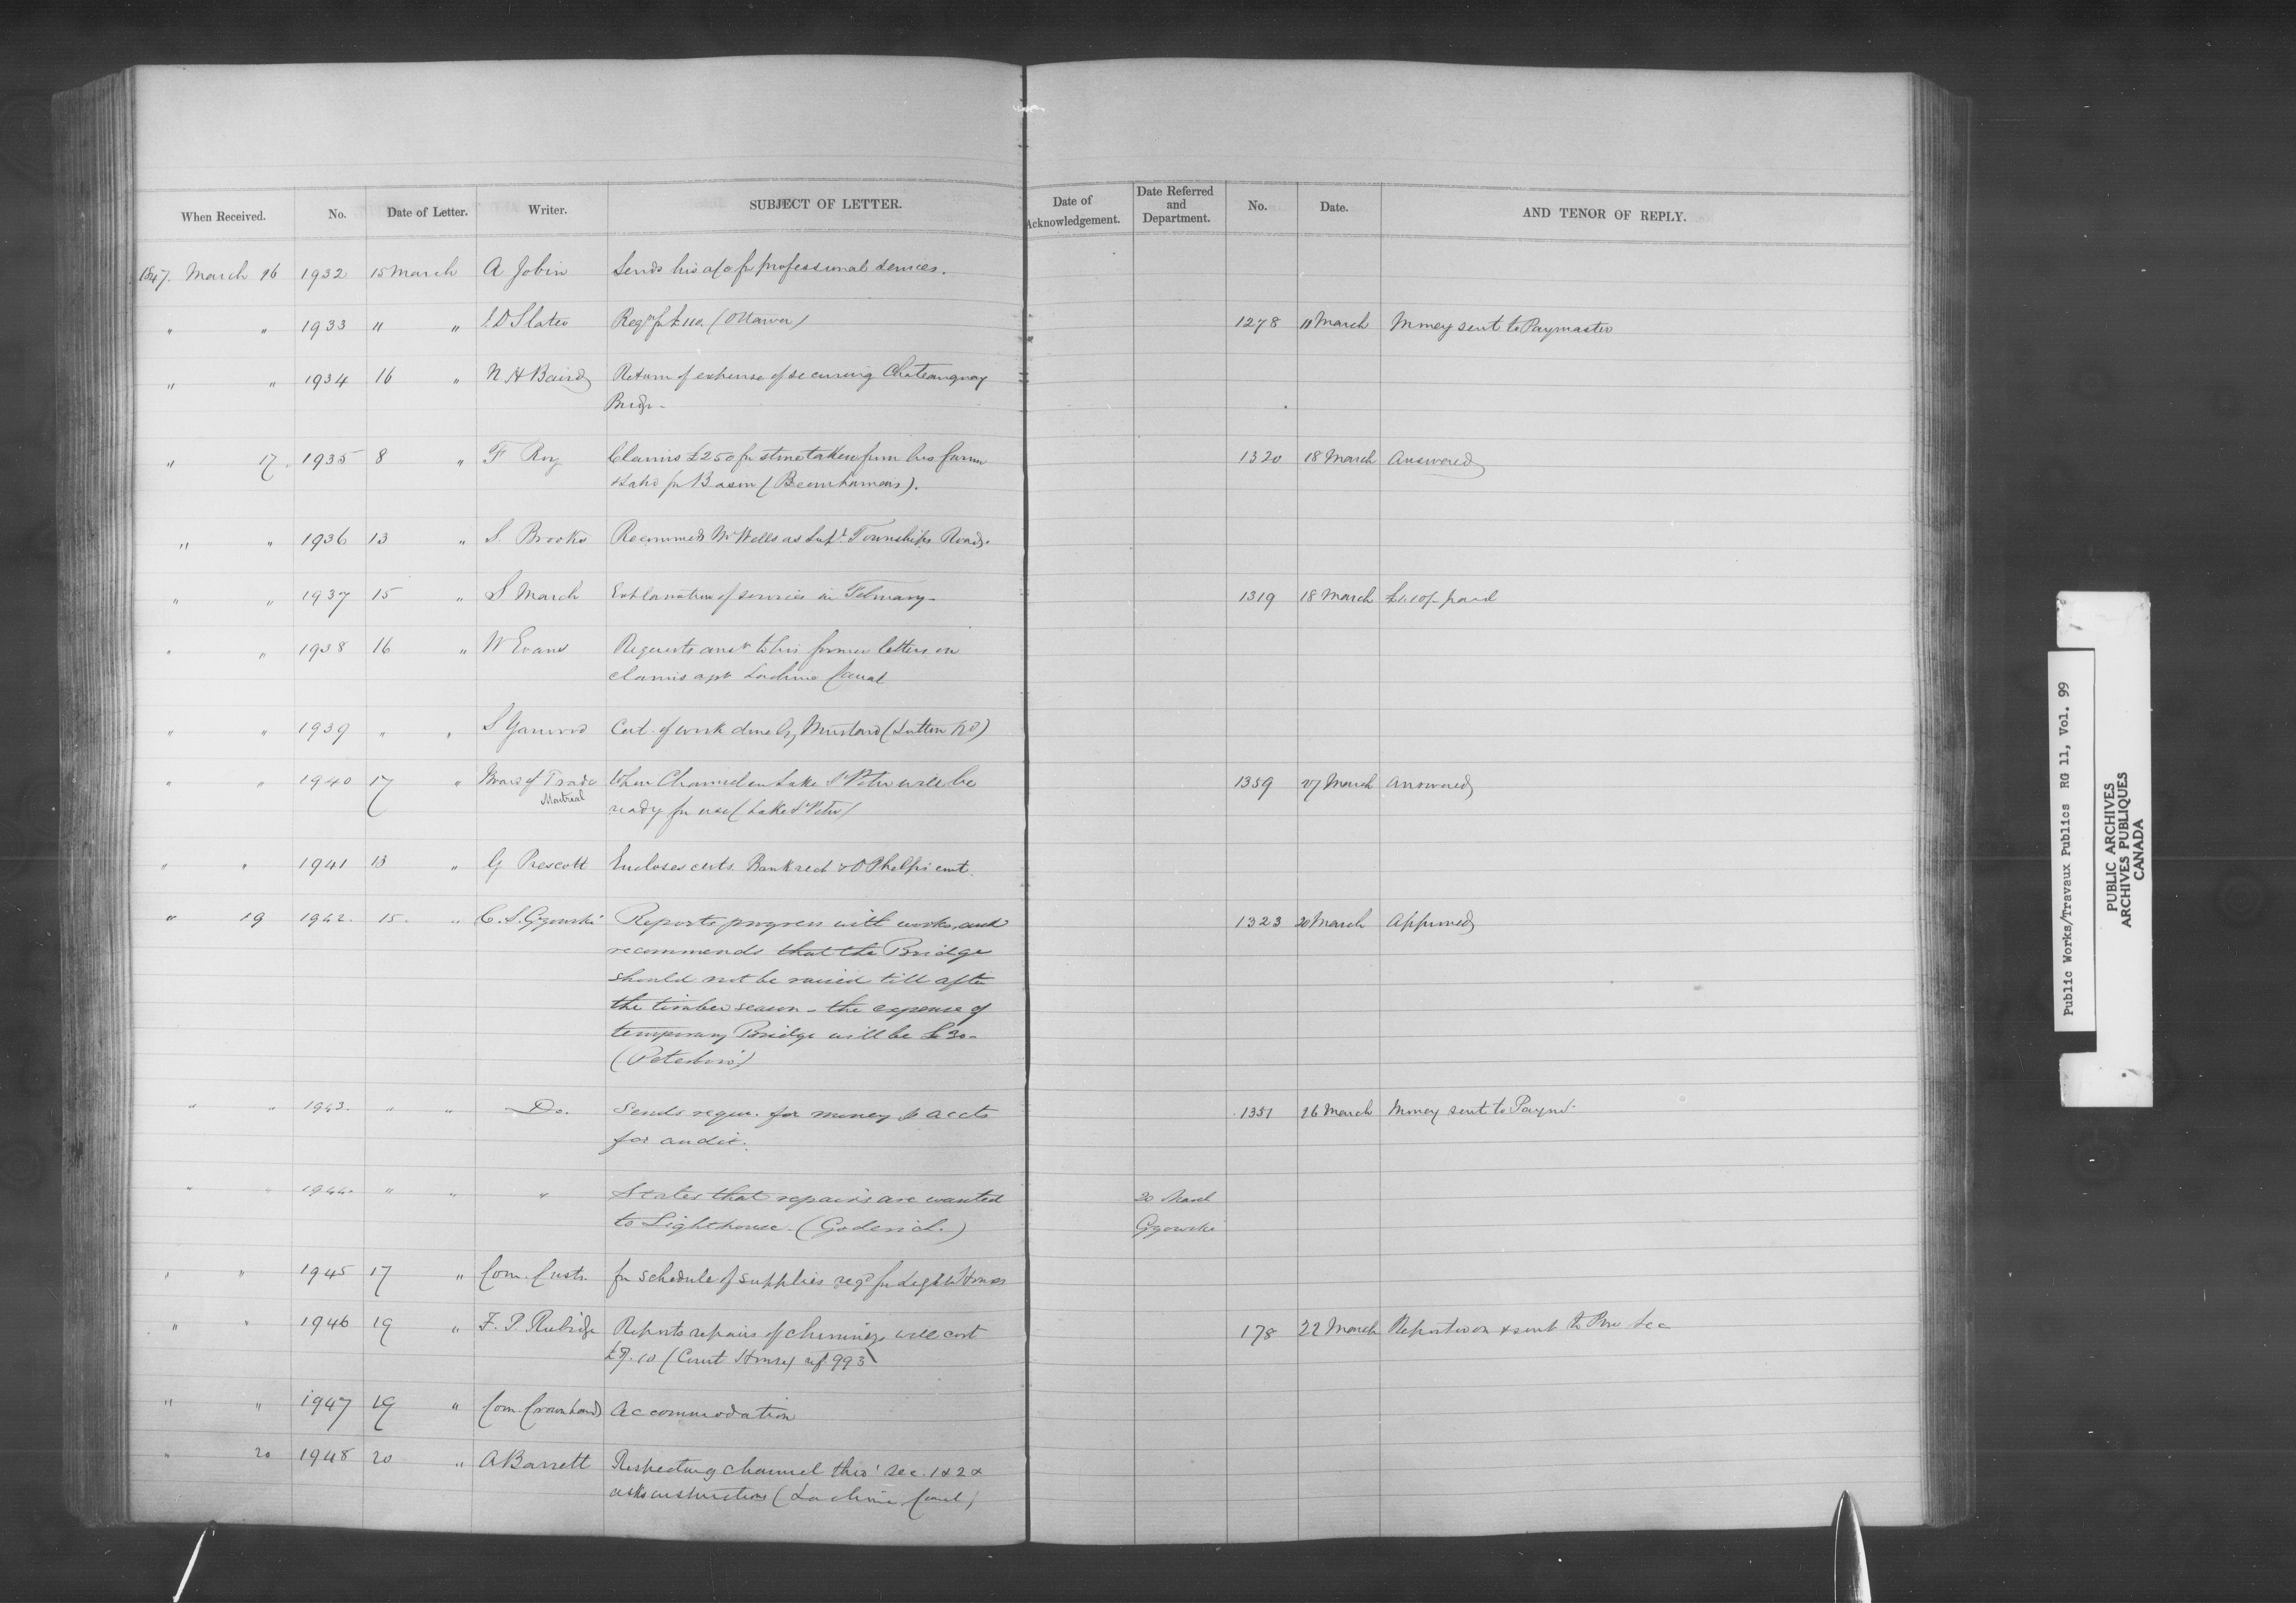 When Received. No. Date of Letter. Writer. SUBJECT OF LETTER. Date of Acknowledgement. Date Referred and Department. No. Date. AND TENOR OF REPLY.
1847. March 16 1932 15 March A Jobin Sends his a/c for professional services.
" " 1933 " " J.D Slater Reqn for £110. (Ottawa) 1278 11 March Money sent to Paymaster
" " 1934 16 " N H Baird Return of expense of securing Chateauguay
Bridge
" 17 1935 8 " F Roy Claims £250 for stone taken from his farm
& land for Basin (Beauharnois). 1320 18 March Answered
" " 1936 13 " S. Brooks Recommends Mr Wells as Supt. Townships Roads.
" " 1937 15 " S March Explanation of services in February 1319 18 March £1.10/- paid
" " 1938 16 " W Evans Requests ansr to his former letters on
claims agst Lachine Canal
" " 1939 " " S Yarwood Cert. of work done by Mustard (Lutton RD)
" " 1940 17 " Board of Trade Montreal When Channel in Lake St Peter will be
ready for use (Lake St Peter) 1359 27 March Answered
" " 1941 13 " G Prescott Encloses certs. Bank rect & O Phelps' cert.
" 19 1942. 15. " C. S. Gzowski Reports progress with works, and
recommends that the Bridge
should not be raised till after
the timber season - the expense of
temporary Bridge will be £30-
(Peterboro') 1323 20 March Approved
" " 1943. " " Do. Sends requn. for money & accts
for audit. 1351 26 March Money sent to Paymr.
" " 1944. " " " States that repairs are wanted
to Lighthouse. (Goderich.) 20 March
Gzowski
" " 1945 17 " Com. Custs. for schedule of supplies reqd for Light Houses
" " 1946 19 " F. P. Rubidge Reports repairs of chimneys will cost
£7.10 (Court House) ref 993 178 22 March Reported on & sent to Prov Sec
" " 1947 19 " Com. Crown Lands Accommodation
" 20 1948 20 " A Barrett Respecting channel thro' Sec. 1 & 2 &
asks instructions (Lachine Canal)
Public Works/Travaux Publics RG 11, Vol. 99
PUBLIC ARCHIVES
ARCHIVES PUBLIQUES
CANADA